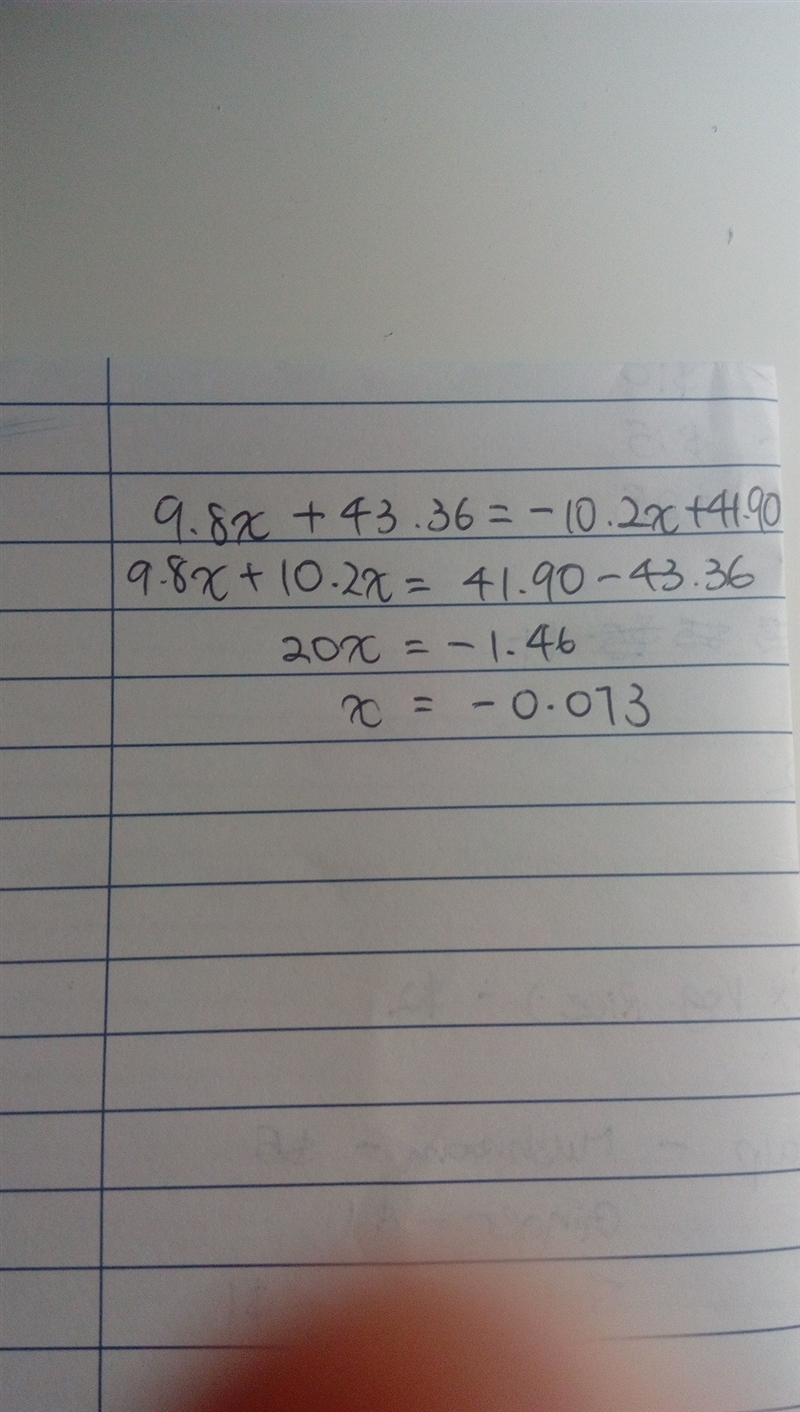 9.8x + 43.36 = -10.2x + 41.90
9.8x + 10.2x = 41.90 - 43.36
20x = -1.46
x = -0.073